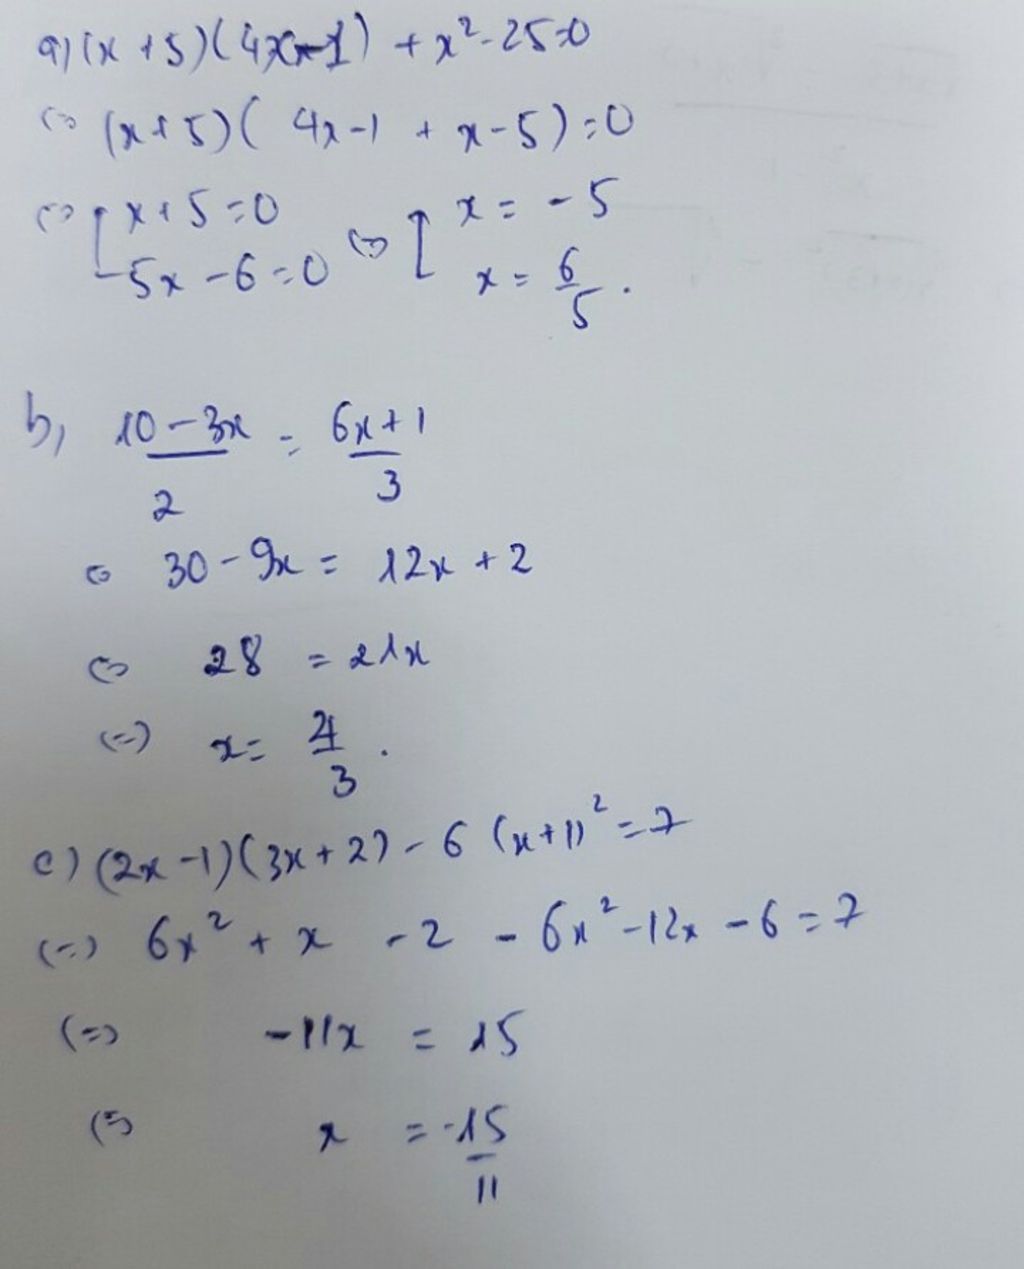 a) (x + 5)(4x - 1) + x² - 25 = 0
<=> (x + 5)( 4x - 1 + x - 5) = 0
<=> [ x + 5 = 0 <=> [ x = - 5
5x - 6 = 0 x = 6/5 .
b, (10 - 3x)/2 = (6x + 1)/3
<=> 30 - 9x = 12x + 2
<=> 28 = 21x
<=> x = 4/3 .
c) (2x - 1)(3x + 2) - 6 (x + 1)² = 7
<=> 6x² + x - 2 - 6x² - 12x - 6 = 7
<=> - 11x = 15
<=> x = -15/11